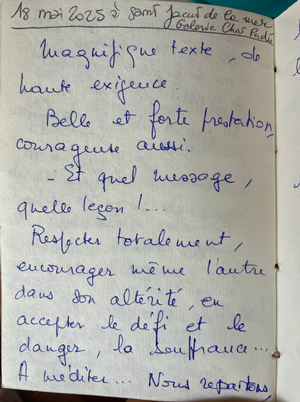 18 mai 2025 à Saint Jacut de la mer
Galerie Chat Perché
Magnifique texte, de
haute exigence.
Belle et forte prestation,
courageuse aussi.
- Et quel message,
quelle leçon !...
Respecter totalement,
encourager même l'autre
dans son altérité, en
accepter le défi et le
danger, la souffrance...
A méditer... Nous repartons,